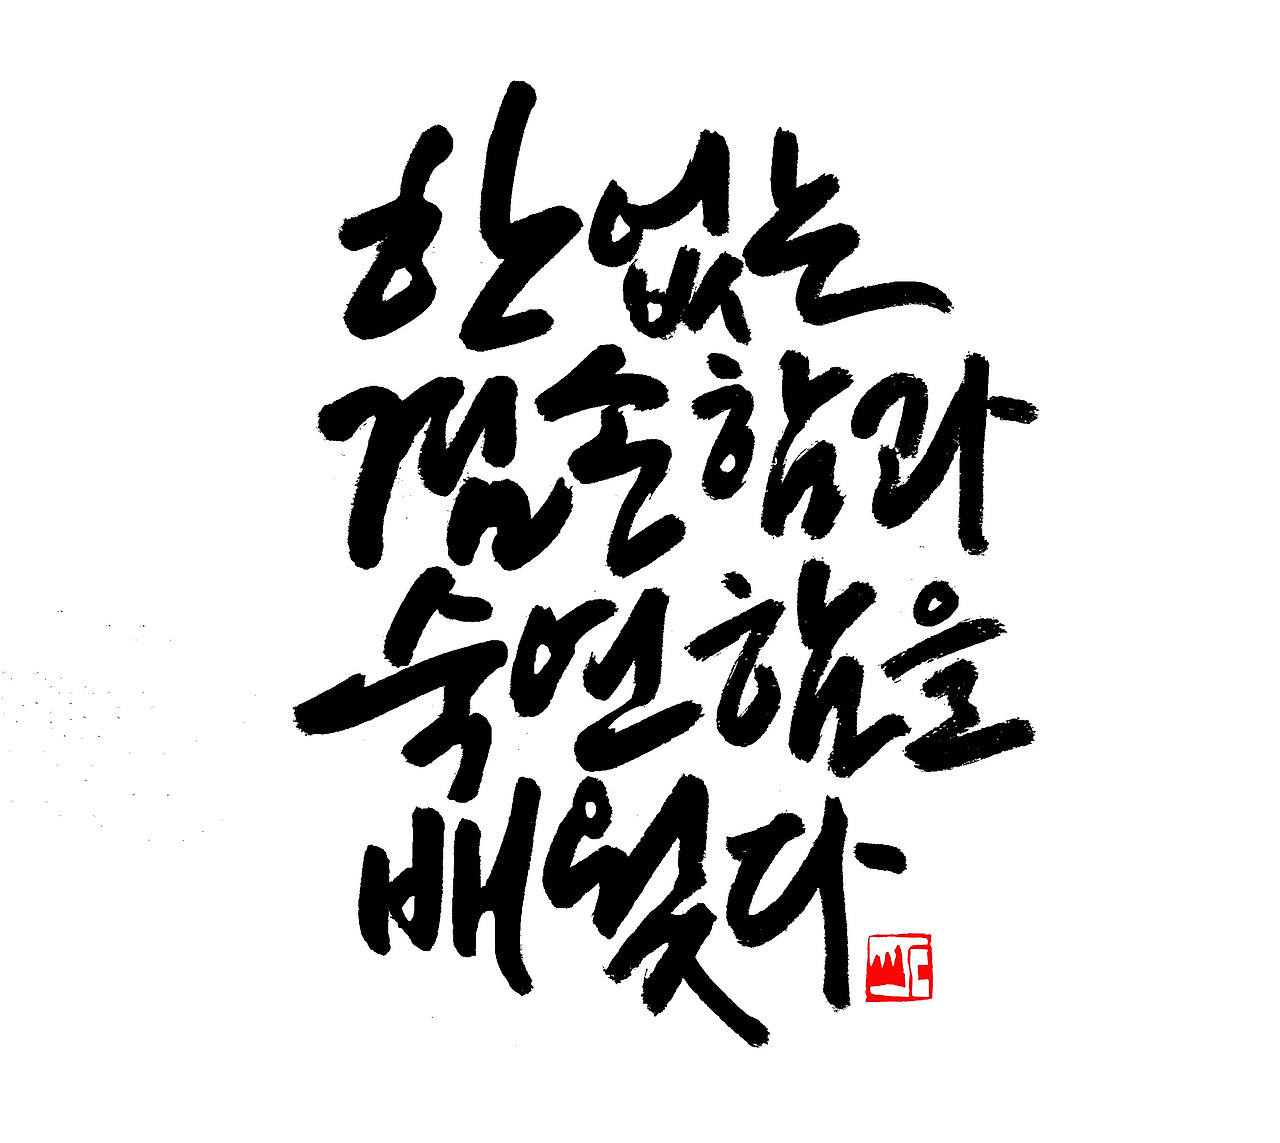 한없는
겸손함과
숙연함을
배웠다